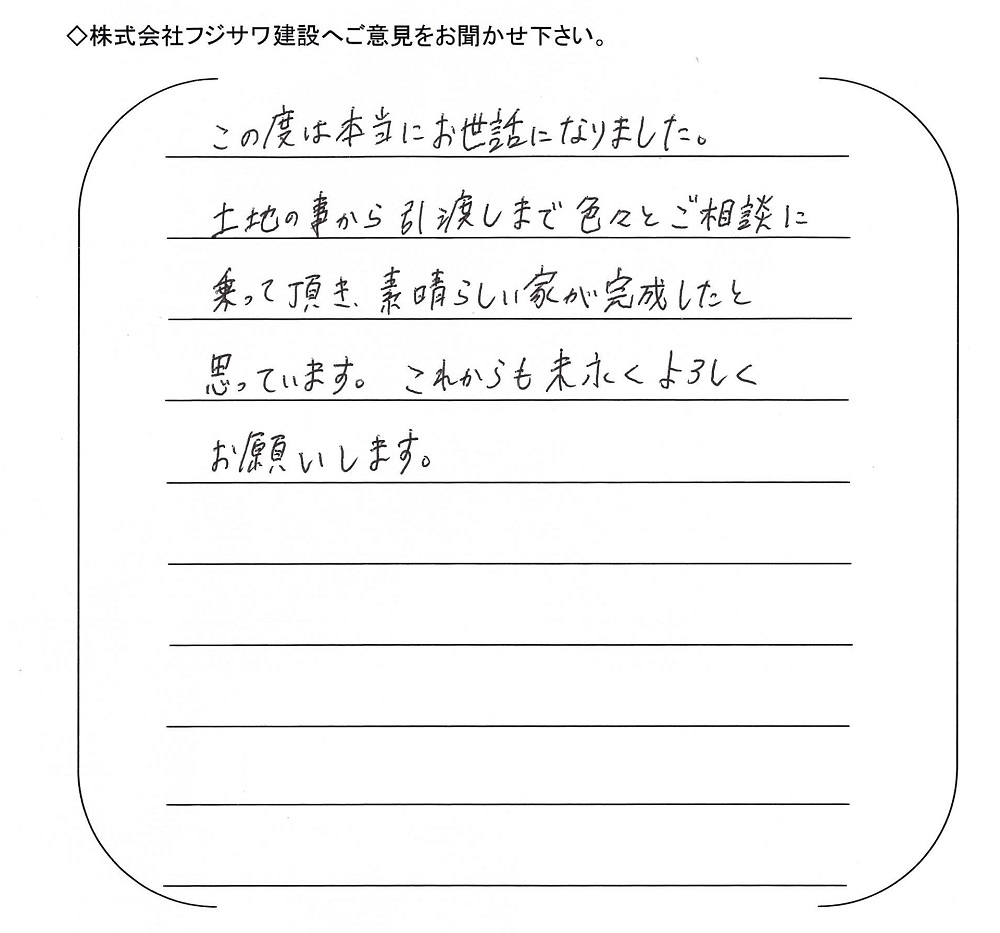 ◇株式会社フジサワ建設へご意見をお聞かせ下さい。
この度は本当にお世話になりました。
土地の事から引渡しまで色々とご相談に
乗って頂き、素晴らしい家が完成したと
思っています。これからも末永くよろしく
お願いします。